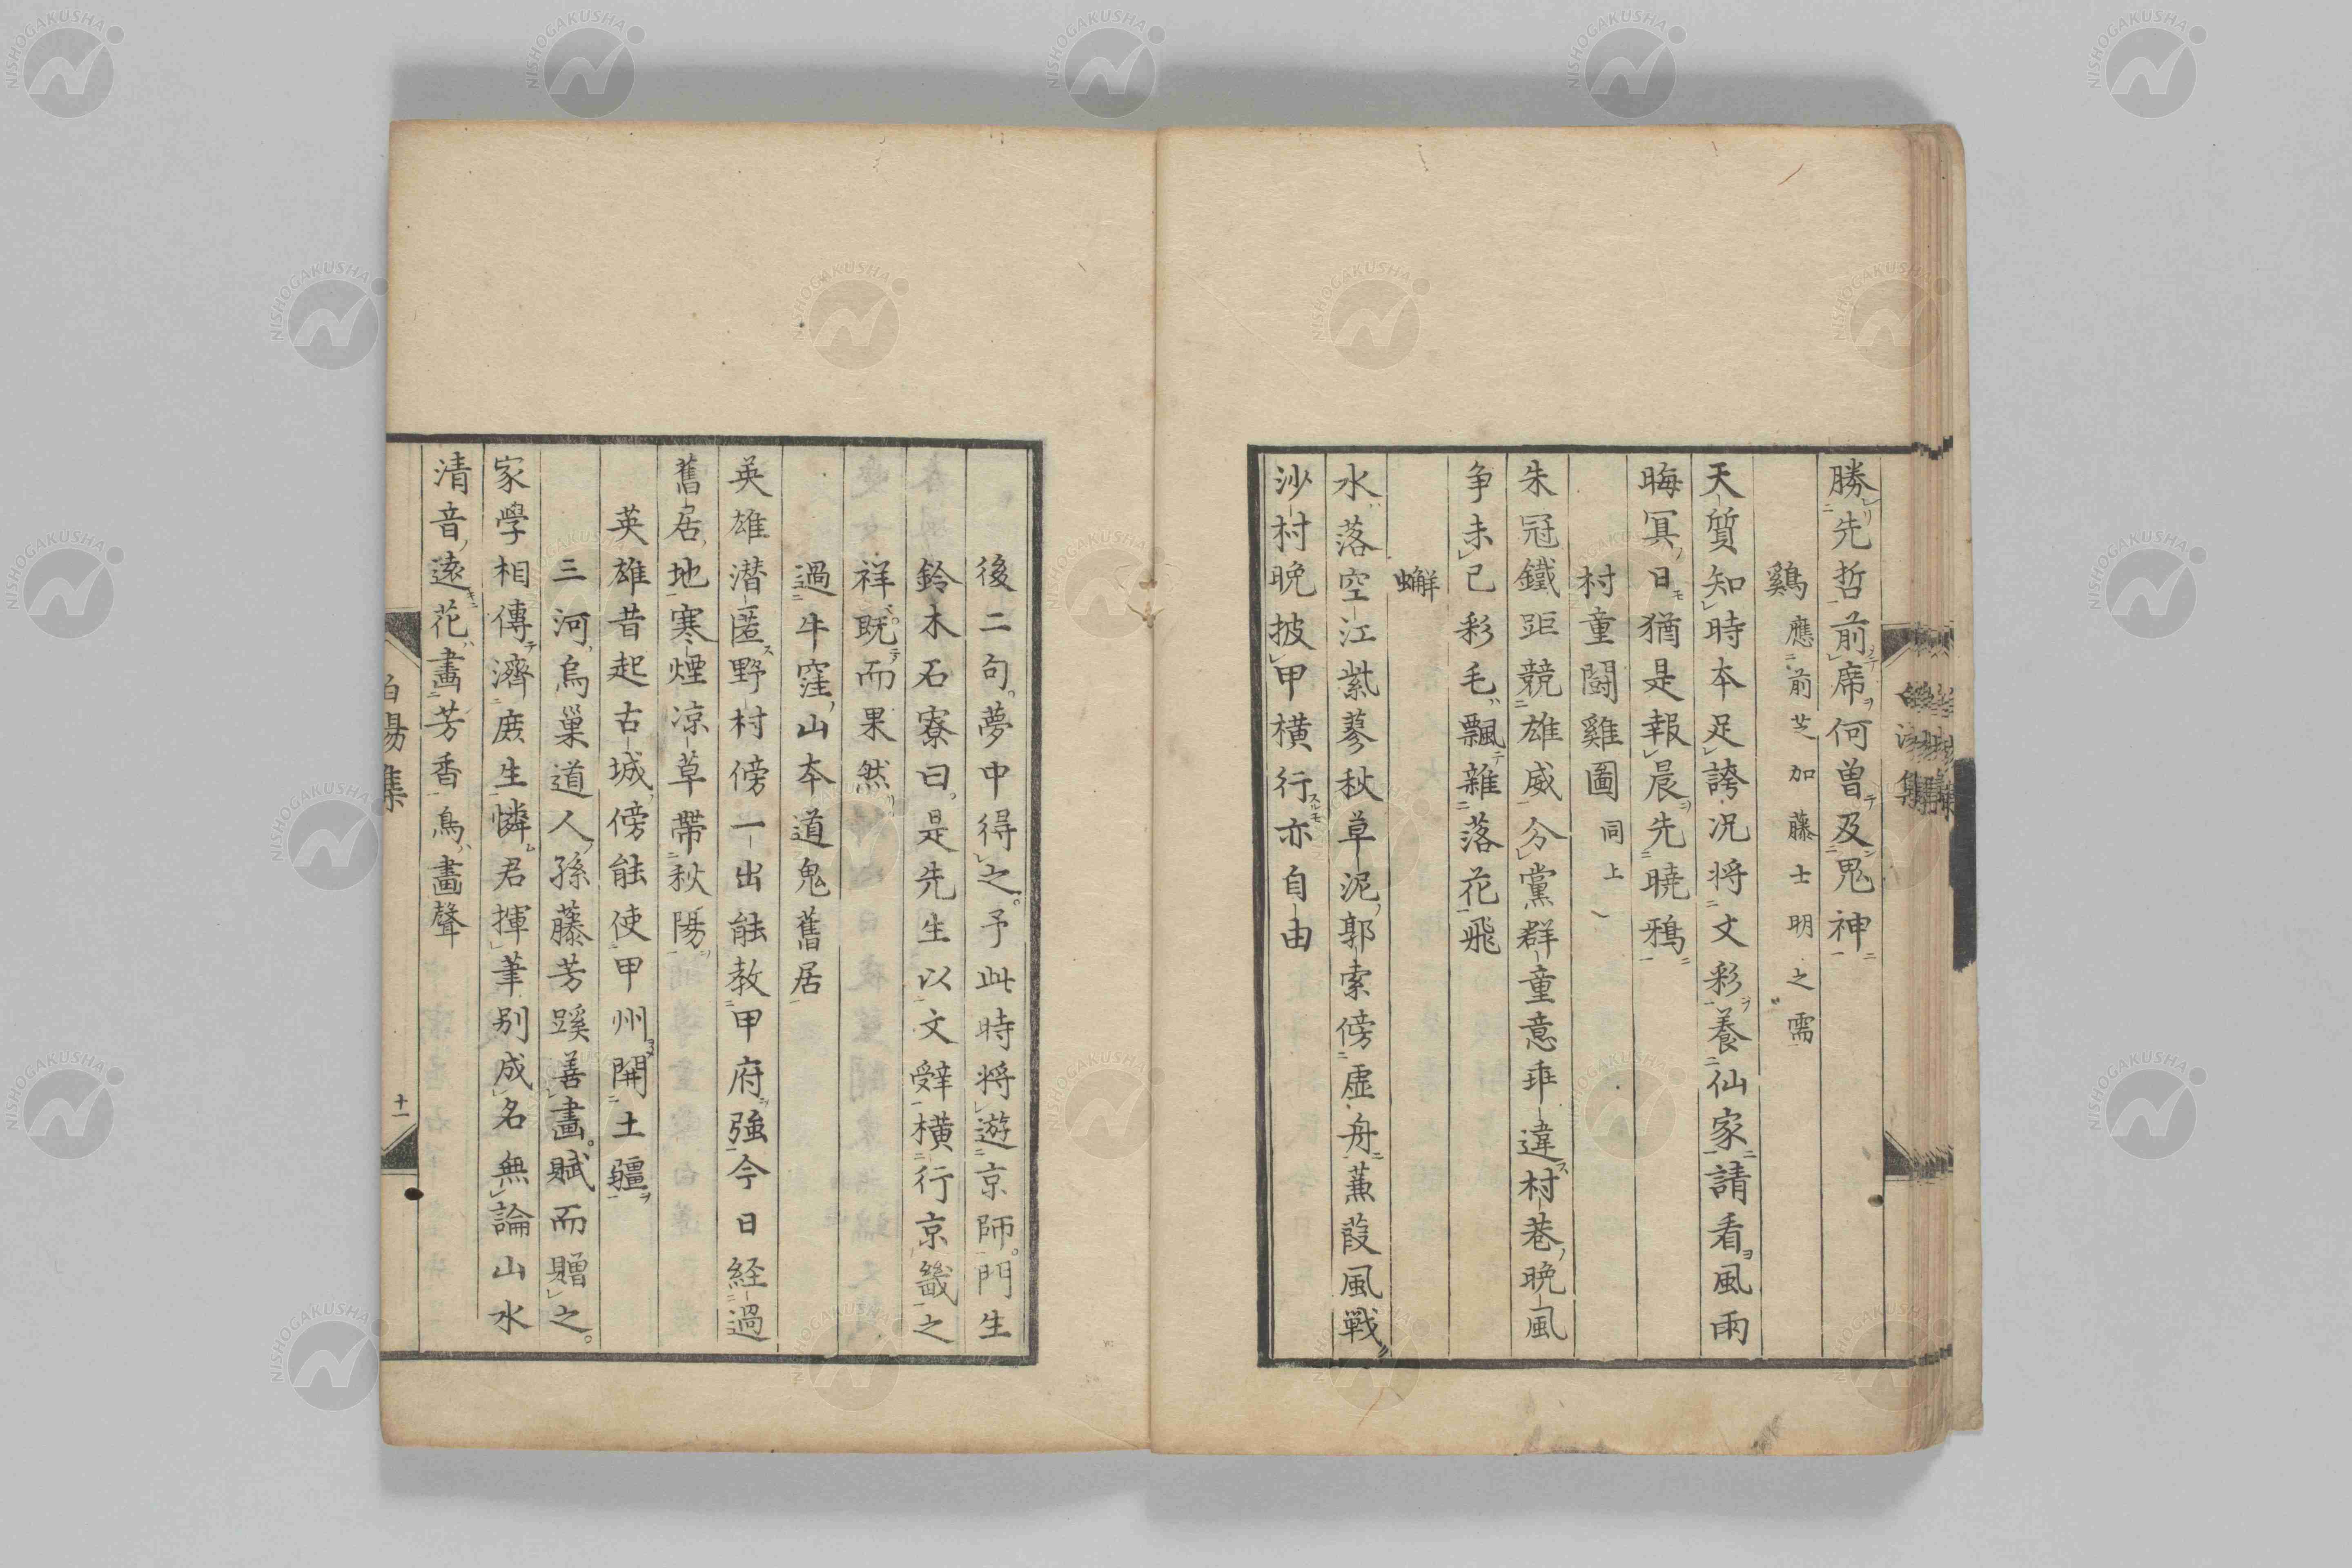 勝先哲前席何曽及鬼神
鷄應前芝加藤士明之需
天質知時本足誇況将文彩養仙家請看風雨
晦冥日猶是報晨先曉鴉
村童鬪雞圖同上
朱冠鐵距競雄威分黨群童意乖違村巷晩風
争未已彩毛飄雜落花飛
蠏
水落空江紫蓼秋草泥郭索傍虚舟蒹葭風戰
沙村晩披甲横行亦自由
後二句夢中得之予此時将遊京師門生
鈴木石寮曰是先生以文辤横行京畿之
祥既而果然
過牛窪山本道鬼舊居
英雄潜匿野村傍一出能教甲府強今日経過
舊居地寒煙凉草帶秋陽
英雄昔起古城傍能使甲州開土疆
三河烏巢道人孫藤芳蹊善畫賦而贈之
家學相傳濟庻生憐君揮筆别成名無論山水
清音遠花畫芳香鳥畫聲
集
十一
NISHOGAKUSHA